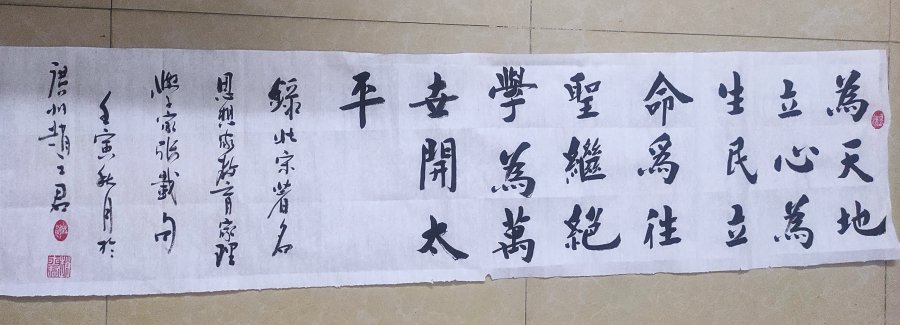 為天地
立心為
生民立
命爲往
聖繼絕
學為萬
世開太
平
録北宋著名
思想家教育家理
學家張載句
壬寅秋月於